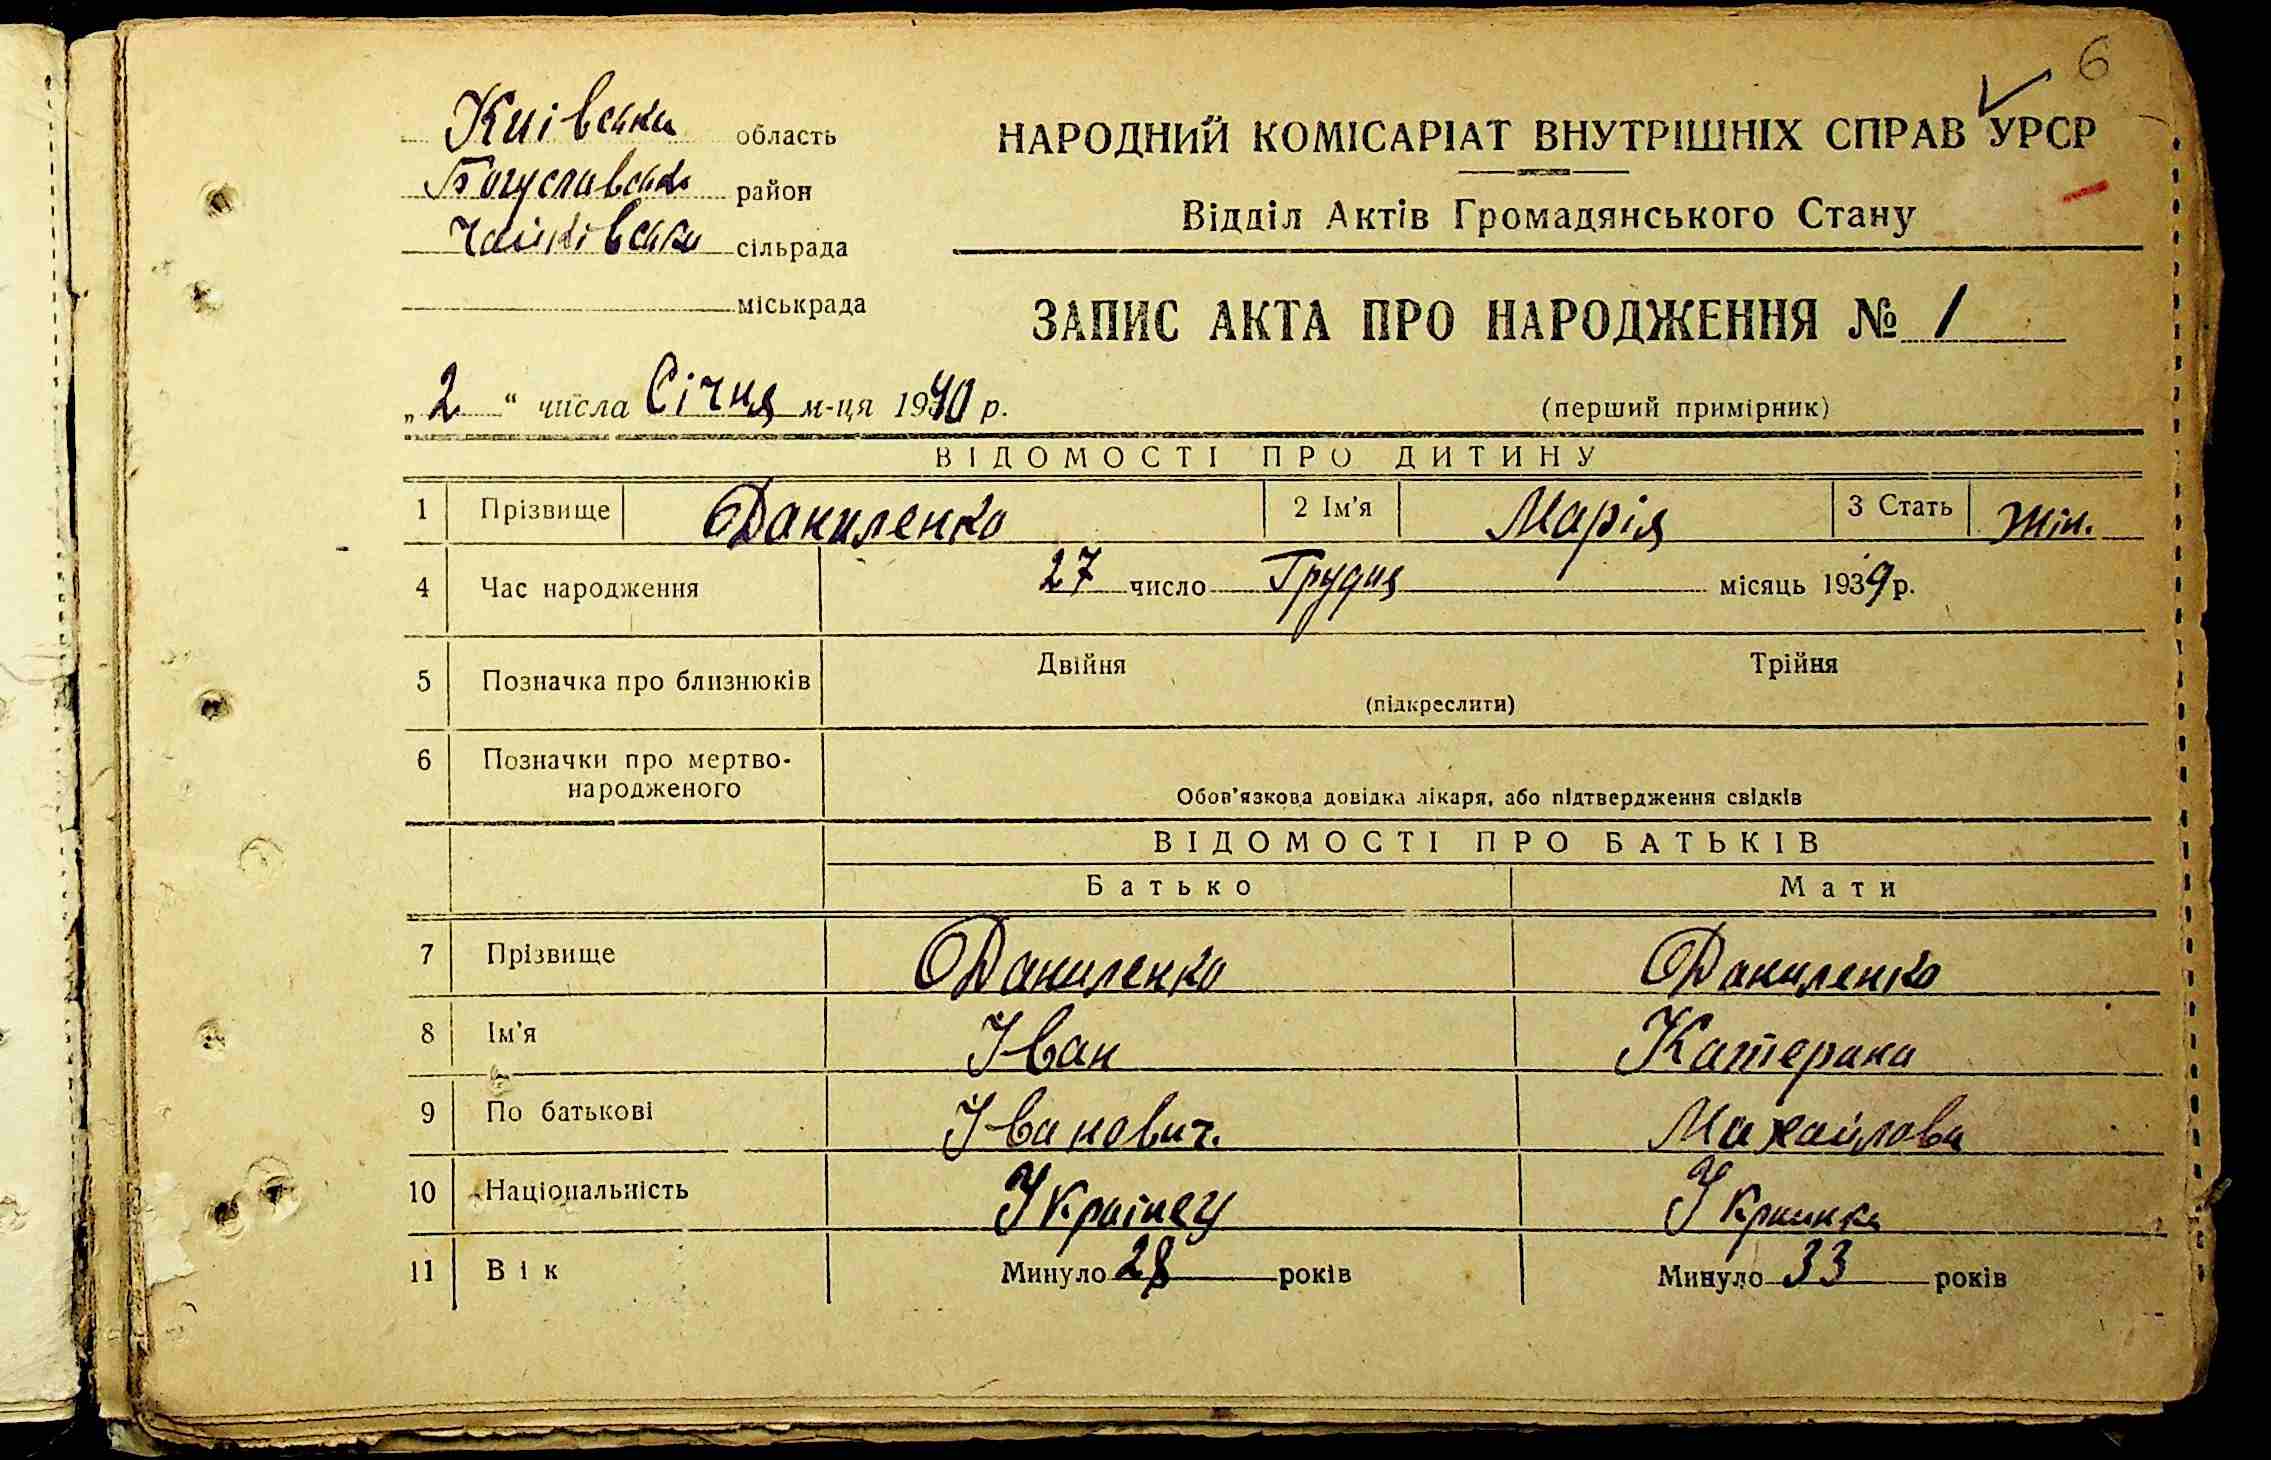 6
Київська область
Богуславський район
Чайківська сільрада
міськрада
НАРОДНИЙ КОМІСАРІАТ ВНУТРІШНІХ СПРАВ УРСР
Відділ Актів Громадянського Стану
ЗАПИС АКТА ПРО НАРОДЖЕННЯ № 1
„2“ числа Січня м-ця 1940 р.
(перший примірник)
ВІДОМОСТІ ПРО ДИТИНУ
1 Прізвище Даниленко 2 Ім'я Марія 3 Стать Жін.
4 Час народження 27 число Грудня місяць 1939 р.
5 Позначка про близнюків Двійня Трійня
(підкреслити)
6 Позначки про мертво-
народженого
Обов'язкова довідка лікаря, або підтвердження свідків
ВІДОМОСТІ ПРО БАТЬКІВ
Батько Мати
7 Прізвище Даниленко Даниленко
8 Ім'я Іван Катерина
9 По батькові Іванович. Михайлова
10 Національність Українец Украинка
11 Вік Минуло 28 років Минуло 33 років